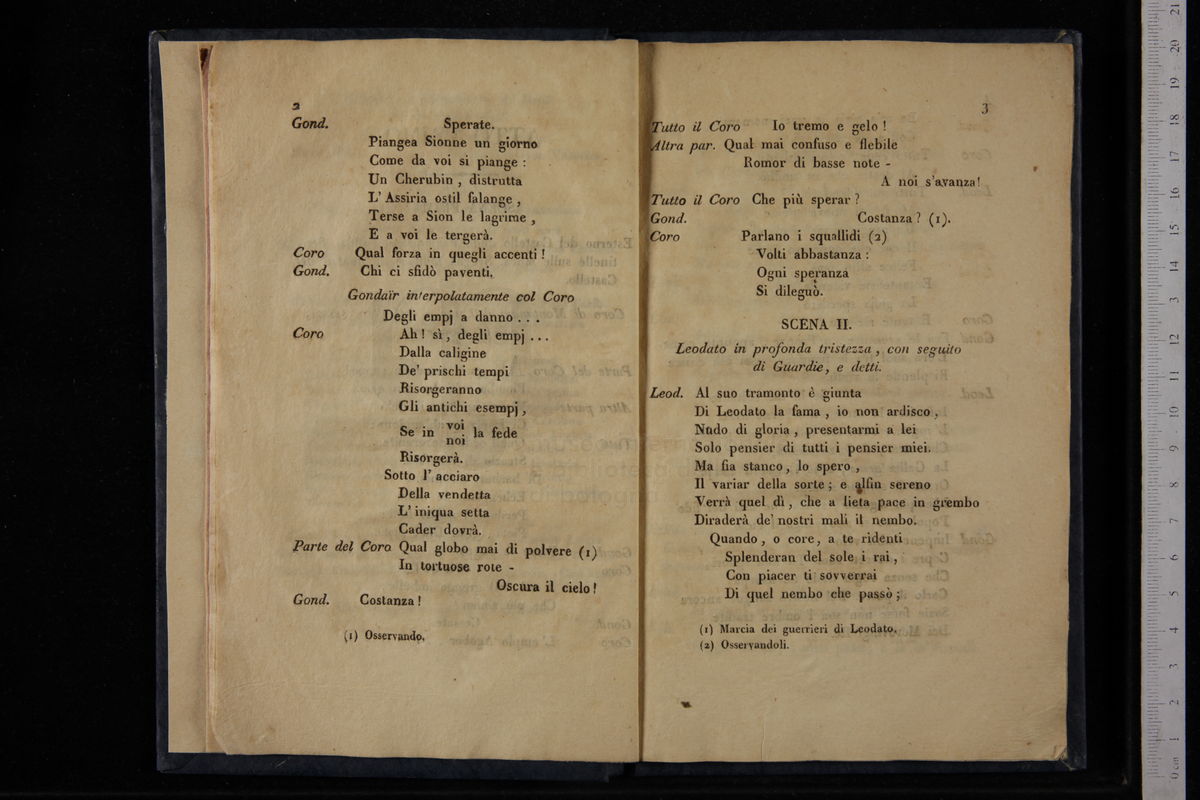 2
Gond. Sperate.
Piangea Sionne un giorno
Come da voi si piange :
Un Cherubin , distrutta
L' Assiria ostil falange ,
Terse a Sion le lagrime ,
E a voi le tergerà.
Coro Qual forza in quegli accenti !
Gond. Chi ci sfidò paventi.
Gondaïr interpolatamente col Coro
Degli empj a danno . . .
Coro Ah ! sì , degli empj . . .
Dalla caligine
De' prischi tempi
Risorgeranno
Gli antichi esempj ,
Se in voi la fede
noi
Risorgerà.
Sotto l' acciaro
Della vendetta
L' iniqua setta
Cader dovrà.
Parte del Coro Qual globo mai di polvere (1)
In tortuose rote -
Oscura il cielo !
Gond. Costanza !
(1) Osservando.
3
Tutto il Coro Io tremo e gelo !
Altra par. Qual mai confuso e flebile
Romor di basse note -
A noi s'avanza !
Tutto il Coro Che più sperar ?
Gond. Costanza ? (1).
Coro Parlano i squallidi (2)
Volti abbastanza :
Ogni speranza
Si dileguò.
SCENA II.
Leodato in profonda tristezza , con seguito
di Guardie, e detti.
Leod. Al suo tramonto è giunta
Di Leodato la fama , io non ardisco ,
Nudo di gloria , presentarmi a lei
Solo pensier di tutti i pensier miei.
Ma fia stanco , lo spero ,
Il variar della sorte ; e alfin sereno
Verrà quel dì , che a lieta pace in grembo
Diraderà de' nostri mali il nembo.
Quando , o core, a te ridenti
Splenderan del sole i rai ,
Con piacer ti sovverrai
Di quel nembo che passò ;
(1) Marcia dei guerrieri di Leodato.
(2) Osservandoli.